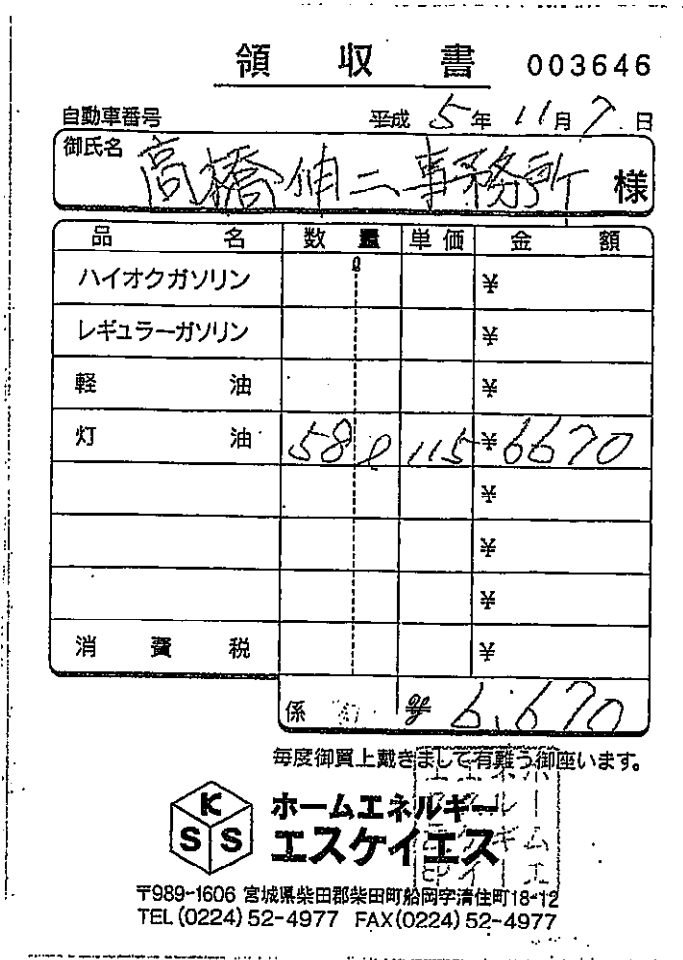 領収書 003646
自動車番号 平成 5年 11月 7日
御氏名
高橋伸二事務所 様
品名 数量 単価 金額
ハイオクガソリン ℓ ¥
レギュラーガソリン ¥
軽油 ¥
灯油 58ℓ 115 ¥6670
¥
¥
¥
消費税 ¥
係 ¥ 6,670
毎度御買上戴きまして有難う御座います。
KSS
ホームエネルギー
エスケイエス
〒989-1606 宮城県柴田郡柴田町船岡字清住町18-12
TEL (0224) 52-4977 FAX (0224) 52-4977